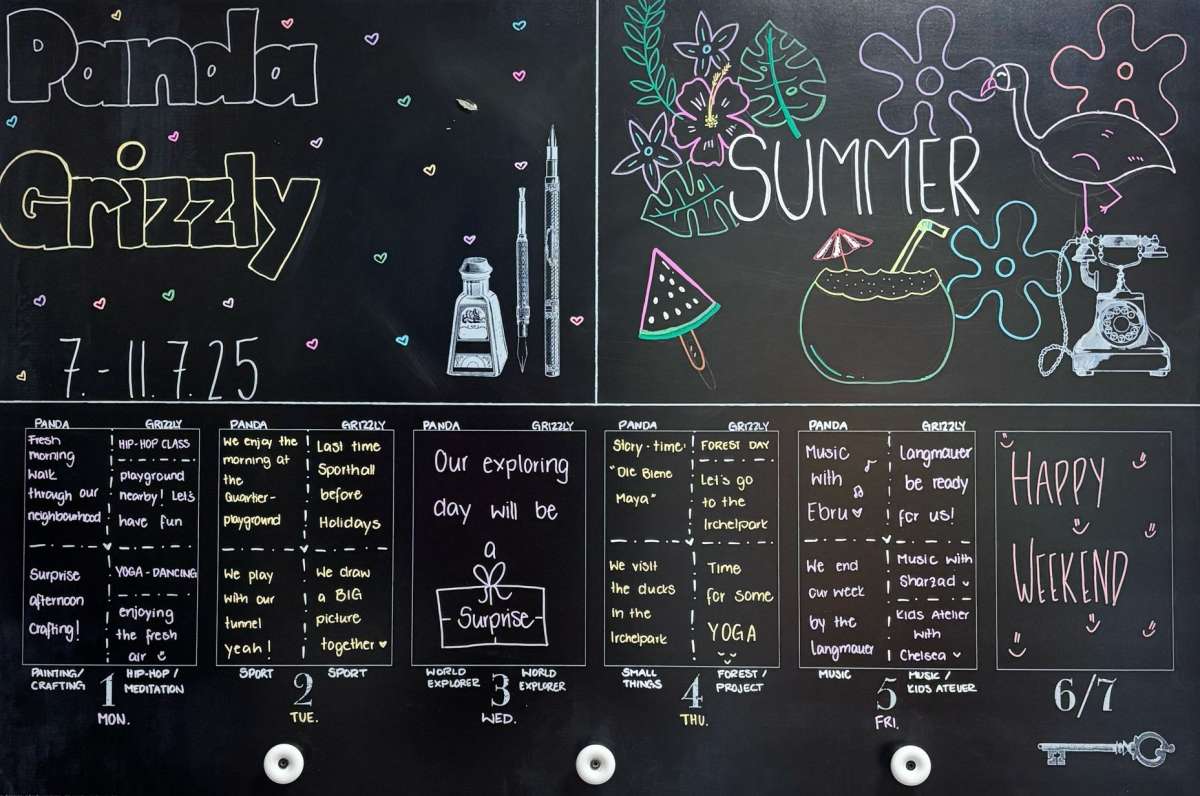 Panda
Grizzly
7. - 11.7.25
SUMMER
PANDA
Fresh
morning
walk
through our
neighbourhood
Surprise
afternoon
Crafting!
PAINTING/
CRAFTING
GRIZZLY
HIP-HOP CLASS
playground
nearby! Let's
have fun
YOGA - DANCING
enjoying
the fresh
air
HIP-HOP /
MEDITATION
1
MON.
PANDA
We enjoy the
morning at
the
Quartier-
playground
We play
with our
tunnel
yeah!
SPORT
GRIZZLY
Last time
Sporthall
before
Holidays
We draw
a BIG
picture
together
SPORT
2
TUE.
PANDA
GRIZZLY
Our exploring
day will be
a
- Surprise -
WORLD
EXPLORER
WORLD
EXPLORER
3
WED.
PANDA
Story-time:
"Die Biene
Maya"
We visit
the ducks
in the
Irchelpark
SMALL
THINGS
GRIZZLY
FOREST DAY
Let's go
to the
Irchelpark
Time
for some
YOGA
FOREST /
PROJECT
4
THU.
PANDA
Music
with
Ebru
We end
our week
by the
Langmauer
MUSIC
GRIZZLY
Langmauer
be ready
for us!
Music with
Sharzad
Kids Atelier
with
Chelsea
MUSIC /
KIDS ATELIER
5
FRI.
HAPPY
WEEKEND
6/7